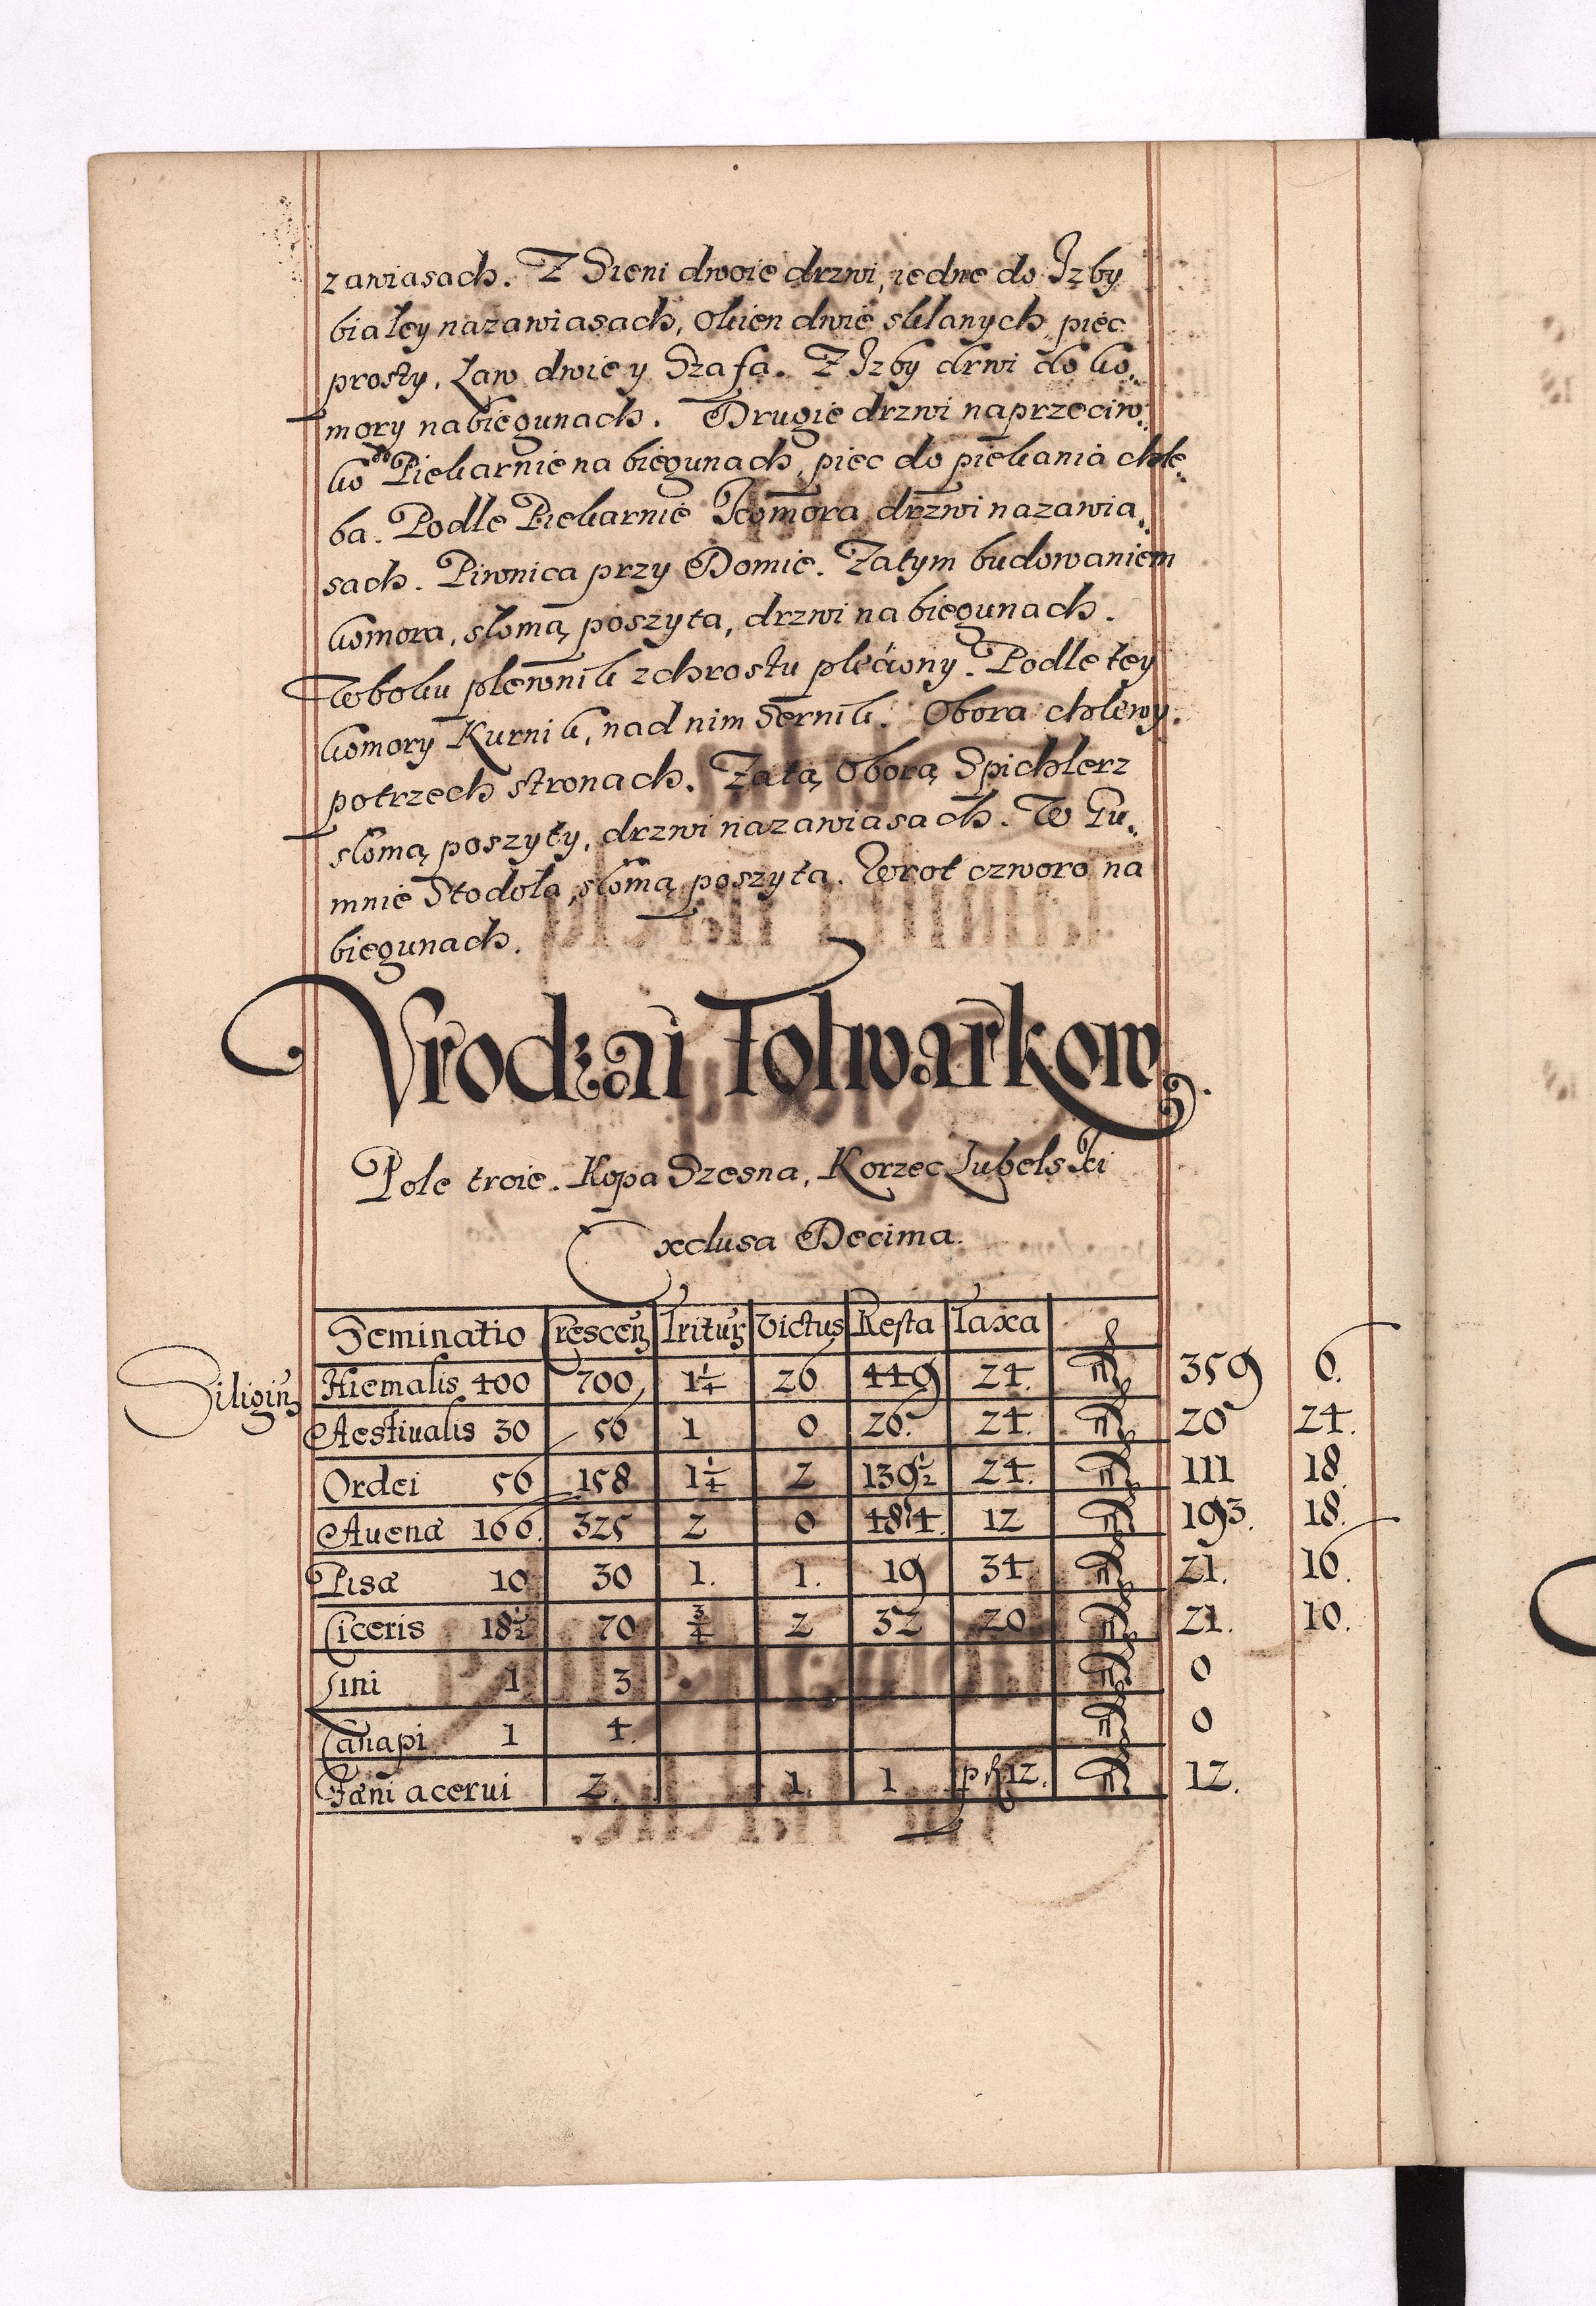 zawiasach. Z Sieni dwoie drzwi, iedne do Izby
białey na zawiasach, Okien dwie sklanych piec
prosty, Ław dwie y Szafa. Z Izby drwi do ko„
mory na biegunach. Drugie drzwi naprzeciw„
ko do Piekarnie na biegunach, piec do piekania chle„
ba. Podle Piekarnie Komora drzwi na zawia„
sach. Piwnica przy Domie. Za tym budowaniem
komora, słomą poszyta, drzwi na biegunach.
W boku plewnik z chrostu pleciony. Podle tey
komory Kurnik, nad nim Sernik. Obora chlewy
po trzech stronach. Za tą Oborą Spichlerz
słomą poszyty, drzwi na zawiasach. W Gu„
mnie Stodoła, słomą poszyta. Wrot czworo na
biegunach.
Vrodzai Folwarkow
Pole troie. Kopa Szesna, Korzec Lubelski
Exclusa Decima.
Seminatio Crescen Tritur Victus Resta Taxa
Siligin Hiemalis 400 700 1 1/4 26 449 24. 359 6.
Aestiualis 30 56 1 0 26. 24. 20 24.
Ordei 56 158 1 1/4 2 139 1/2 24. 111 18
Auenæ 166. 325 2 0 484. 12 193. 18.
Pisæ 10 30 1. 1. 19 34 21. 16.
Ciceris 18 1/2 70 3/4 2 32 20 21. 10.
Lini 1 3 0
Canapi 1 4. 0
Fæni acerui 2. 1. 1 12. 12.